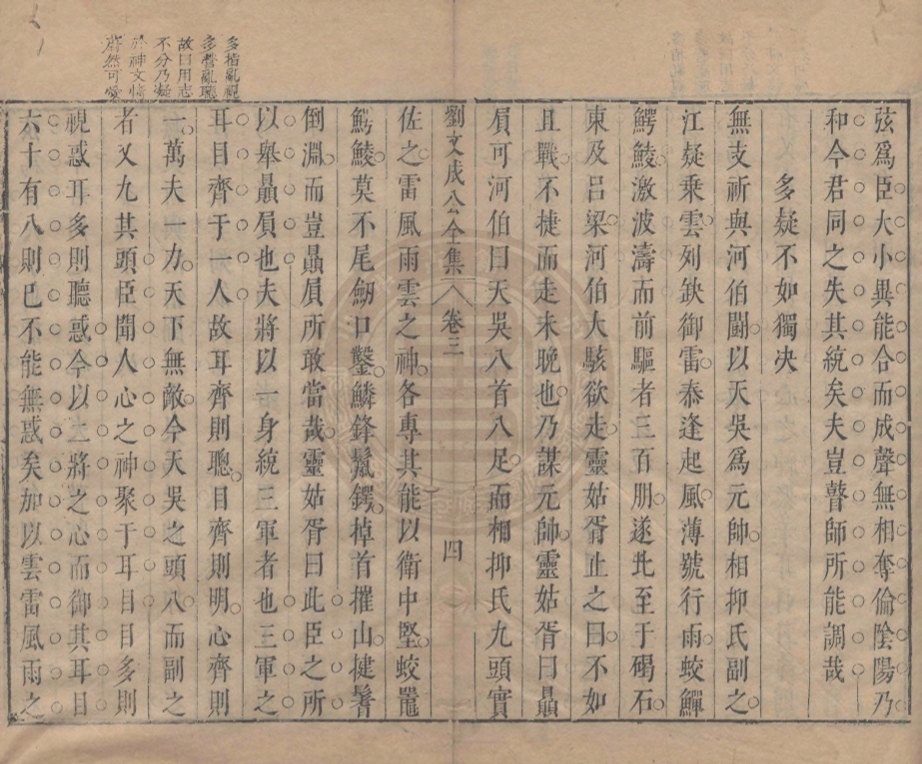 弦爲臣大小異能合而成聲無相奪倫陰陽乃
和今君同之失其統矣夫豈瞽師所能調哉
多疑不如獨決
無支祈與河伯鬭以天吳爲元帥相抑氏副之
江疑乘雲列缺御雷泰逢起風薄號行雨蛟鱓
鰐鯪激波濤而前驅者三百朋遂北至于碣石
東及呂梁河伯大駭欲走靈姑胥止之曰不如
且戰不捷而走未晚也乃謀元帥靈姑胥曰贔
屓可河伯曰天吳八首八足而相抑氏九頭實
劉文成公全集
卷三
四
佐之雷風雨雲之神各專其能以衛中堅蛟鼉
鰐鯪莫不尾劒口鑿鱗鋒鬣鍔掉首摧山揵鬐
倒淵而豈贔屓所敢當哉靈姑胥曰此臣之所
以舉贔屓也夫將以一身統三軍者也三軍之
耳目齊于一人故耳齊則聰目齊則明心齊則
一萬夫一力天下無敵今天吳之頭八而副之
者又九其頭臣聞人心之神聚于耳目目多則
視惑耳多則聽惑今以二將之心而御其耳目
六十有八則已不能無惑矣加以雲雷風雨之
多指亂視
多言亂聽
故曰用志
不分乃凝
於神文情
蔚然可愛